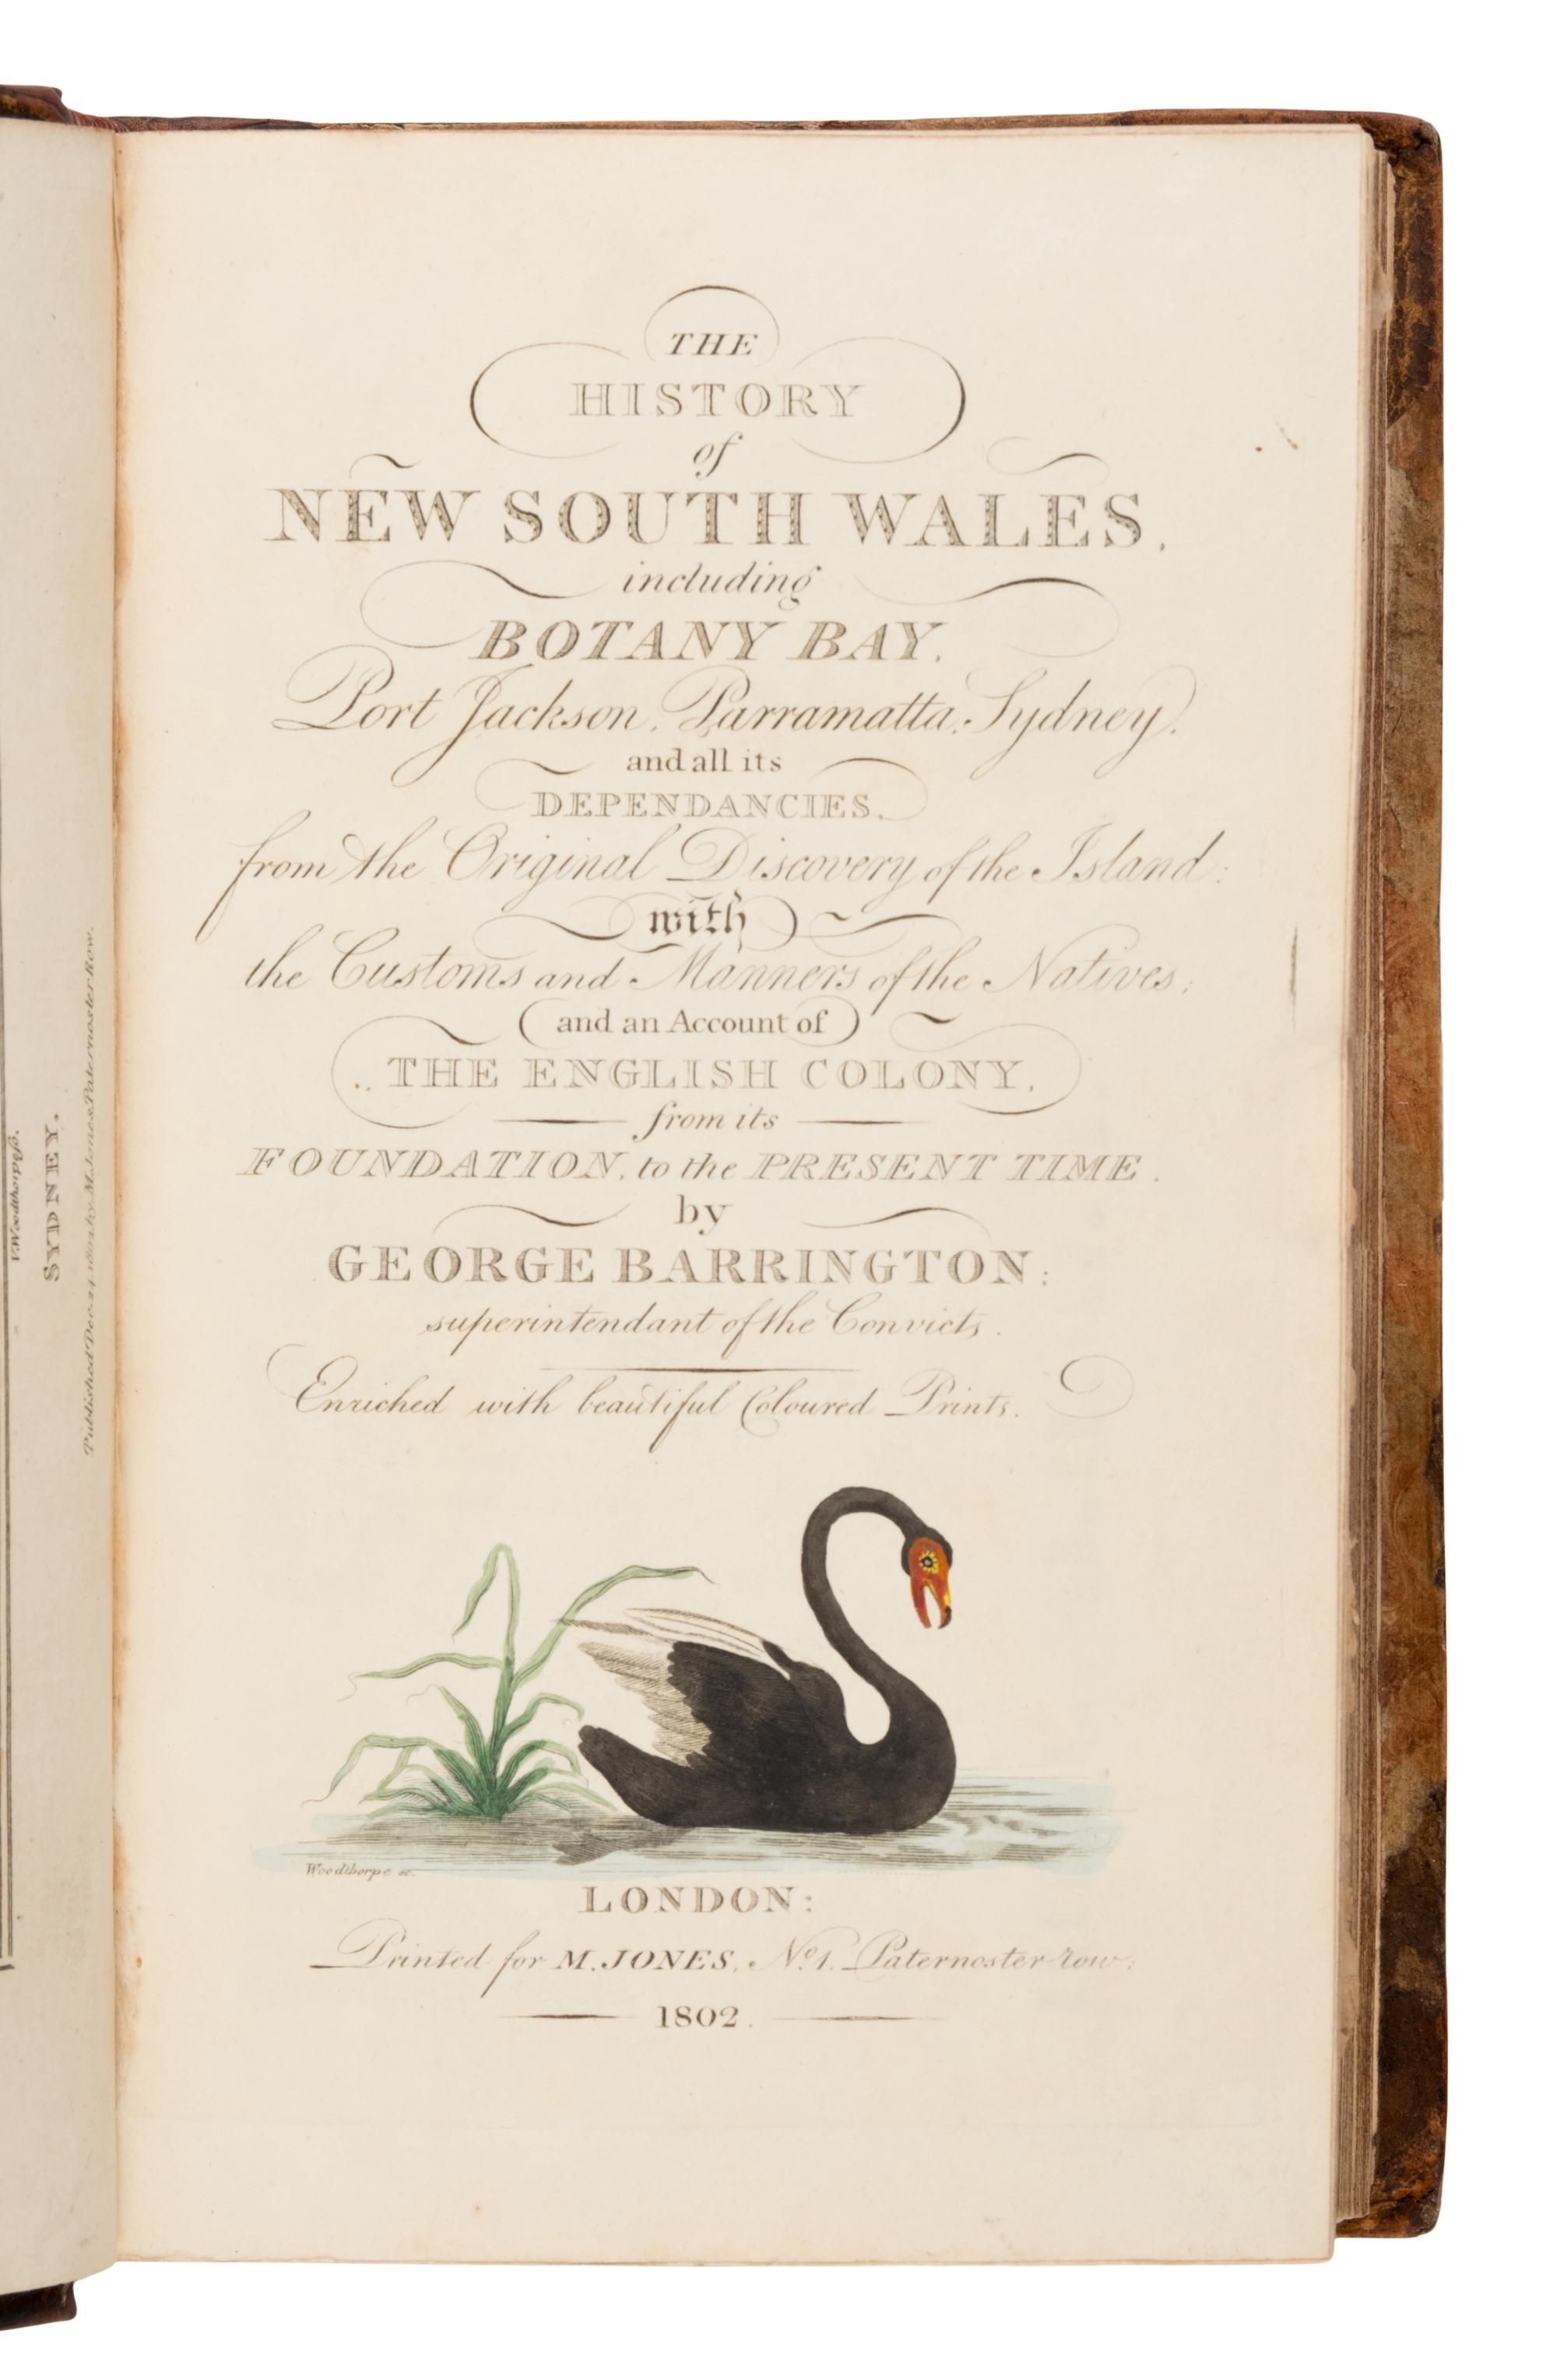 V. Woodthorpe sc.
SYDNEY.
Published Dec. 24, 1802, by M. Jones, Paternoster Row.
THE
HISTORY
of
NEW SOUTH WALES,
including
BOTANY BAY,
Port Jackson, Parramatta, Sydney,
and all its
DEPENDANCIES,
from the Original Discovery of the Island:
with
the Customs and Manners of the Natives;
and an Account of
THE ENGLISH COLONY,
from its
FOUNDATION, to the PRESENT TIME.
by
GEORGE BARRINGTON:
superintendant of the Convicts.
Enriched with beautiful Coloured Prints.
Woodthorpe sc.
LONDON:
Printed for M. JONES, No. 1. Paternoster row;
1802.